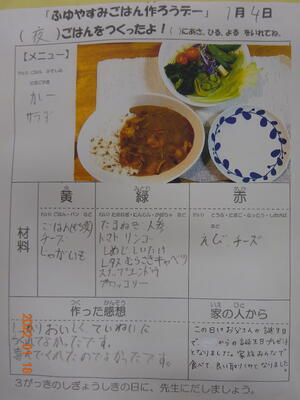 「ふゆやすみごはん作ろうデー」 1月4日
(夜)ごはんをつくったよ! ( )にあさ、ひる、よる をいれてね。
【メニュー】
カレー
サラダ
材料
黄
緑
赤
チーズ
じゃがいも
たまねぎ 人参
トマト リンゴ
しめじ しいたけ
レタス むらさきキャベツ
スナップエンドウ
ブロッコリー
えび、チーズ
作った感想
おいしく、ていねいに
つくれてよかったです。
たのでよかったです。
家の人から
この日はお父さんの誕生日
で、 からの誕生日プレゼント
となりました。家族みんなで
食べて、良い 日となりました。
3がっきのしぎょうしきの日に、先生にだしましょう。